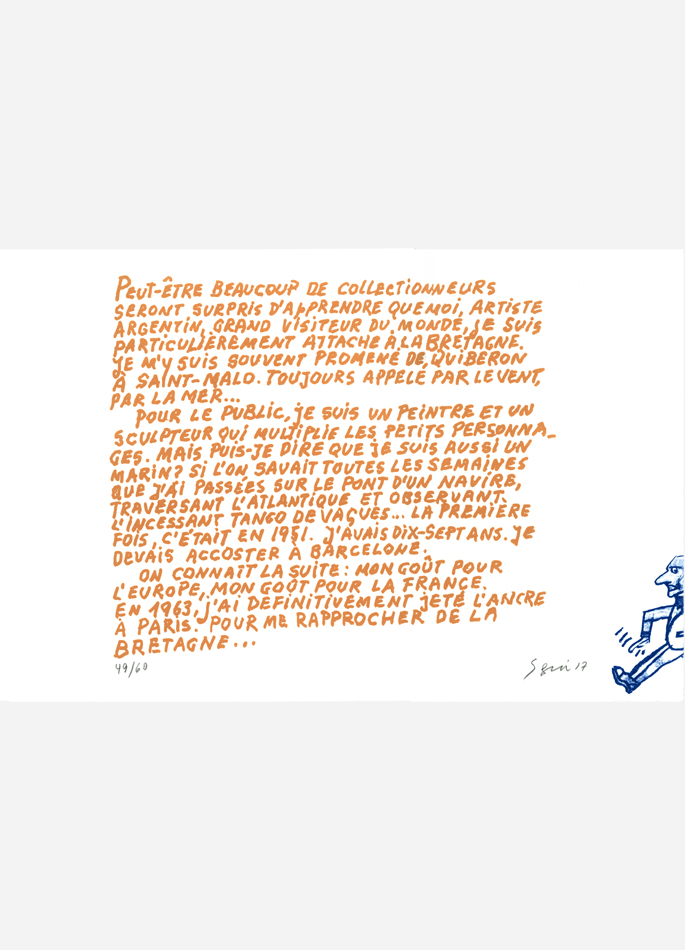 PEUT-ÊTRE BEAUCOUP DE COLLECTIONNEURS
SERONT SURPRIS D'APPRENDRE QUE MOI, ARTISTE
ARGENTIN, GRAND VISITEUR DU MONDE, JE SUIS
PARTICULIÈREMENT ATTACHÉ À LA BRETAGNE.
JE M'Y SUIS SOUVENT PROMENÉ DE QUIBERON
À SAINT-MALO. TOUJOURS APPELÉ PAR LE VENT,
PAR LA MER...
POUR LE PUBLIC, JE SUIS UN PEINTRE ET UN
SCULPTEUR QUI MULTIPLIE LES PETITS PERSONNA_
GES. MAIS PUIS-JE DIRE QUE JE SUIS AUSSI UN
MARIN? SI L'ON SAVAIT TOUTES LES SEMAINES
QUE J'AI PASSÉES SUR LE PONT D'UN NAVIRE,
TRAVERSANT L'ATLANTIQUE ET OBSERVANT
L'INCESSANT TANGO DE VAGUES... LA PREMIÈRE
FOIS, C'ÉTAIT EN 1951. J'AVAIS DIX-SEPT ANS. JE
DEVAIS ACCOSTER À BARCELONE.
ON CONNAÎT LA SUITE : MON GOÛT POUR
L'EUROPE, MON GOÛT POUR LA FRANCE.
EN 1963, J'AI DÉFINITIVEMENT JETÉ L'ANCRE
À PARIS. POUR ME RAPPROCHER DE LA
BRETAGNE...
49/60
Segui 17